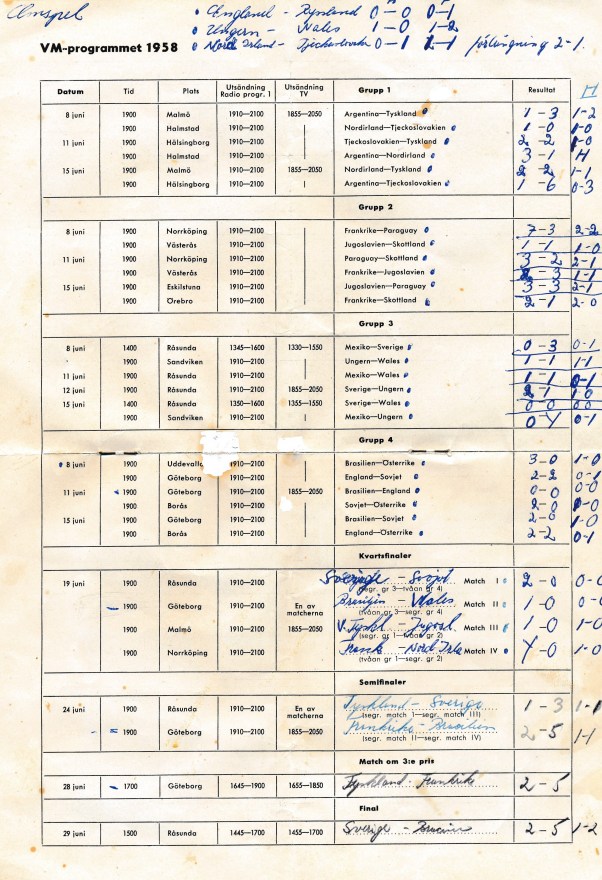 Omspel
England - Ryssland 0-0 0-1
Ungern - Wales 1-0 1-2
VM-programmet 1958 Nord Irland - Tjeckoslovakien 0-1 1-1 förlängning 2-1.
Datum Tid Plats Utsändning Radio progr. 1 Utsändning TV Grupp 1 Resultat H
8 juni 1900 Malmö 1910—2100 1855—2050 Argentina—Tyskland 1-3 1-2
1900 Halmstad 1910—2100 Nordirland—Tjeckoslovakien 1-0 1-0
11 juni 1900 Hälsingborg 1910—2100 Tjeckoslovakien—Tyskland 2-2 1-0
1900 Halmstad 1910—2100 Argentina—Nordirland 3-1 H
15 juni 1900 Malmö 1910—2100 1855—2050 Nordirland—Tyskland 2-2 1-1
1900 Hälsingborg 1910—2100 Argentina—Tjeckoslovakien 1-6 0-3
Grupp 2
8 juni 1900 Norrköping 1910—2100 Frankrike—Paraguay 7-3 2-2
1900 Västerås 1910—2100 Jugoslavien—Skottland 1-1 1-0
11 juni 1900 Norrköping 1910—2100 Paraguay—Skottland 3-2 2-1
1900 Västerås 1910—2100 Frankrike—Jugoslavien 2-3 1-1
15 juni 1900 Eskilstuna 1910—2100 Jugoslavien—Paraguay 3-3 2-1
1900 Örebro 1910—2100 Frankrike—Skottland 2-1 2-0
Grupp 3
8 juni 1400 Råsunda 1345—1600 1330—1550 Mexiko—Sverige 0-3 0-1
1900 Sandviken 1910—2100 Ungern—Wales 1-1 1-1
11 juni 1900 Råsunda 1910—2100 Mexiko—Wales 1-1 0-1
12 juni 1900 Råsunda 1910—2100 1855—2050 Sverige—Ungern 2-1 1-0
15 juni 1400 Råsunda 1350—1600 1355—1550 Sverige—Wales 0-0 0-0
1900 Sandviken 1910—2100 Mexiko—Ungern 0-4 0-1
Grupp 4
8 juni 1900 Uddevalla 1910—2100 Brasilien—Österrike 3-0 1-0
1900 Göteborg 1910—2100 England—Sovjet 2-2 0-1
11 juni 1900 Göteborg 1910—2100 1855—2050 Brasilien—England 0-0 0-0
1900 Borås 1910—2100 Sovjet—Österrike 2-0 1-0
15 juni 1900 Göteborg 1910—2100 Brasilien—Sovjet 2-0 1-0
1900 Borås 1910—2100 England—Österrike 2-2 0-1
Kvartsfinaler
19 juni 1900 Råsunda 1910—2100 Sverige - Sovjet Match I 2-0 0-0
(segr. gr 3—tvåan gr 4)
1900 Göteborg 1910—2100 En av matcherna Brasilien - Wales Match II 1-0 0-0
(tvåan gr 3—segr. gr 4)
1900 Malmö 1910—2100 1855—2050 V. Tyskl - Jugosl Match III 1-0 1-0
(segr. gr 1—tvåan gr 2)
1900 Norrköping 1910—2100 Frank - Nord Irla Match IV 4-0 1-0
(tvåan gr 1—segr. gr 2)
Semifinaler
24 juni 1900 Råsunda 1910—2100 En av matcherna Tyskland - Sverige 1-3 1-1
(segr. match I—segr. match III)
1900 Göteborg 1910—2100 1855—2050 Frankrike - Brasilien 2-5 1-1
(segr. match II—segr. match IV)
Match om 3:e pris
28 juni 1700 Göteborg 1645—1900 1655—1850 Tyskland - Frankrike 2-5
Final
29 juni 1500 Råsunda 1445—1700 1455—1700 Sverige - 2-5 1-2